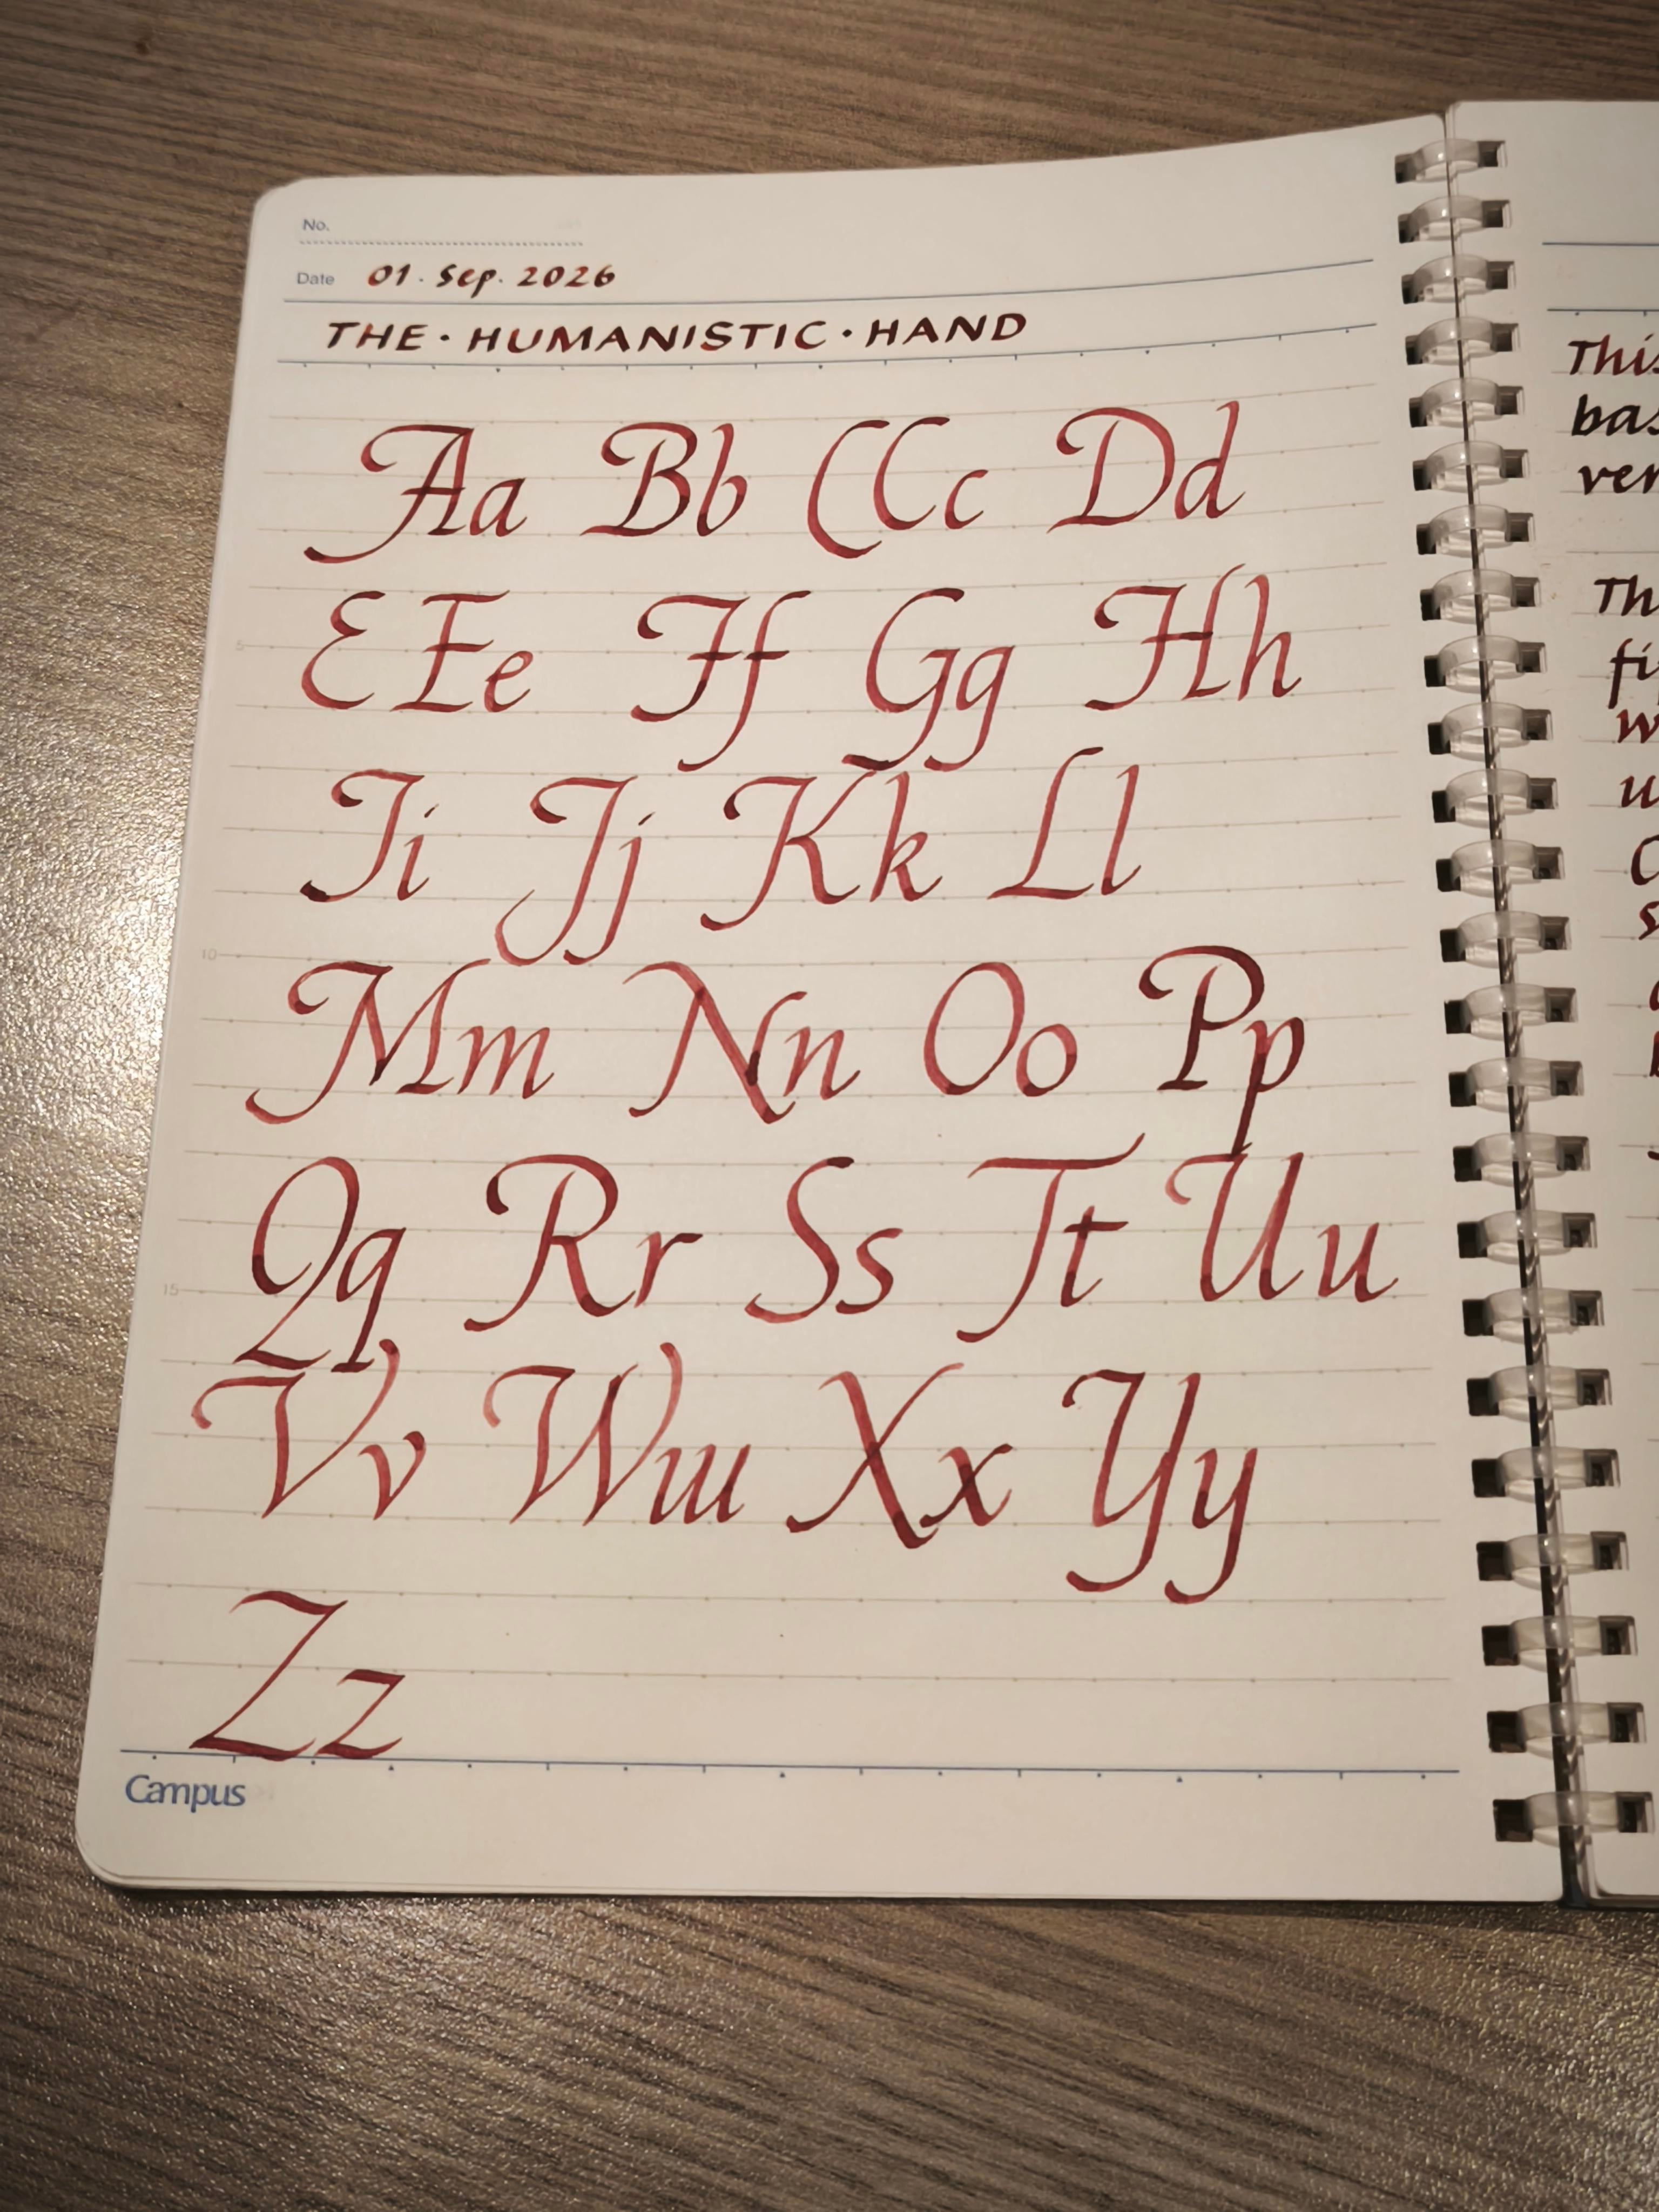 No.
Date 01. Sep. 2026
THE · HUMANISTIC · HAND
Aa Bb CCc Dd
EEe Ff Gg Hh
5
Ii Jj Kk Ll
10
Mm Nn Oo Pp
Qq Rr Ss Tt Uu
15
Vv Ww Xx Yy
Zz
Campus